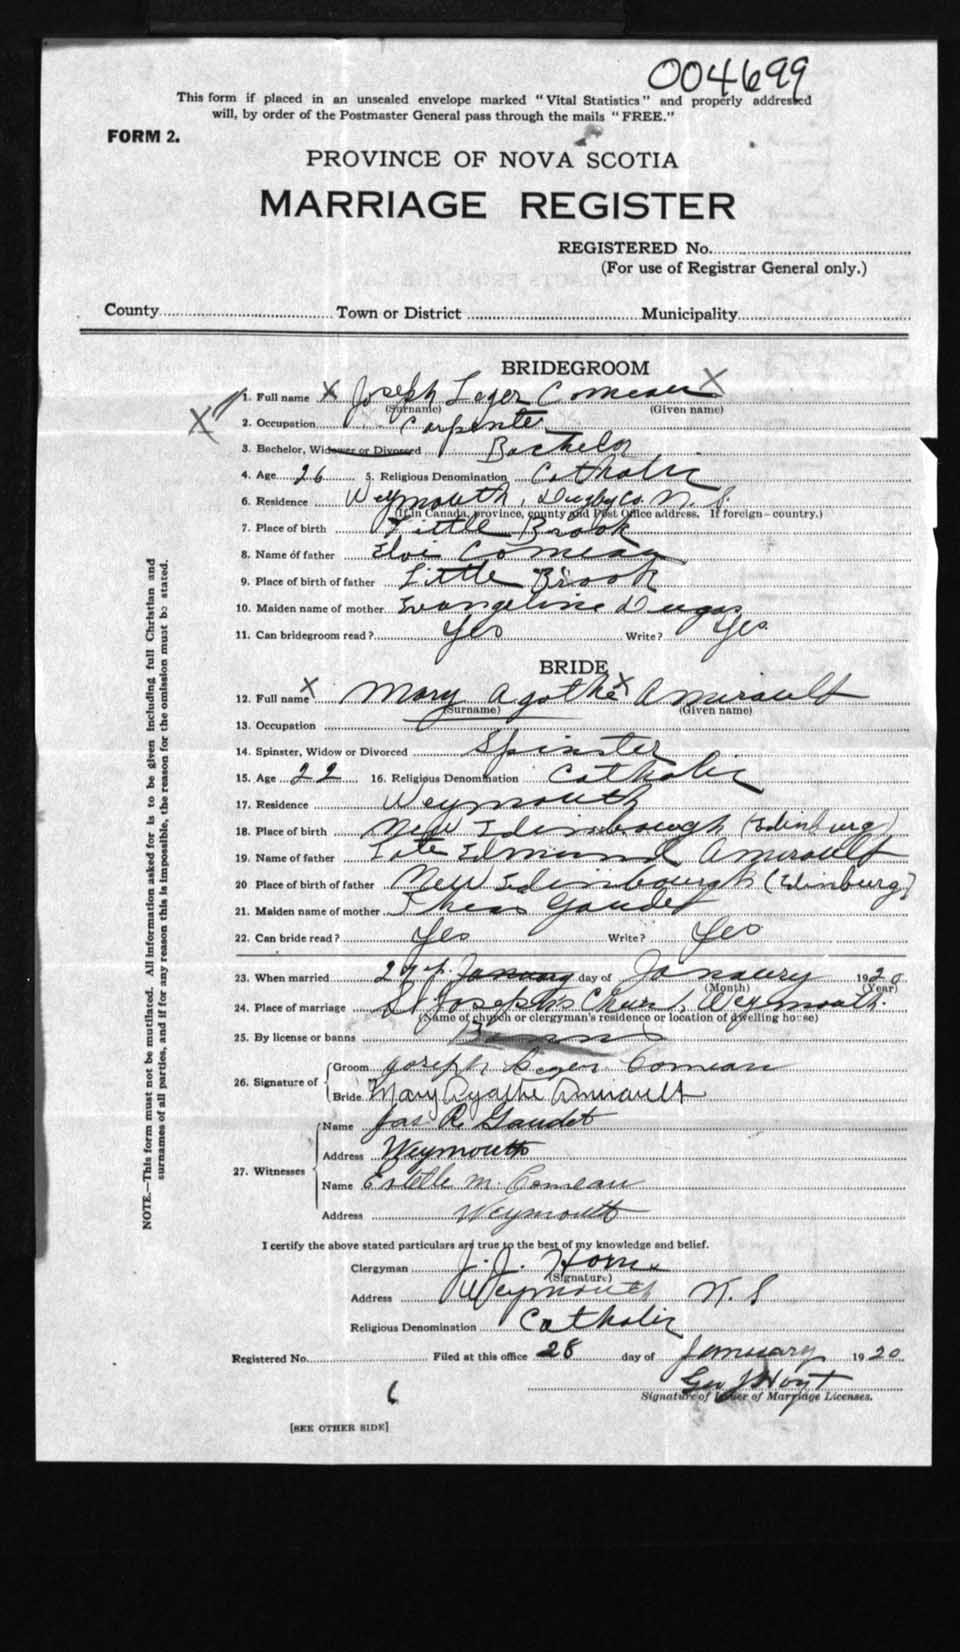 004699
This form if placed in an unsealed envelope marked "Vital Statistics" and properly addressed
will, by order of the Postmaster General pass through the mails "FREE."
FORM 2.
PROVINCE OF NOVA SCOTIA
MARRIAGE REGISTER
REGISTERED No.
(For use of Registrar General only.)
County Town or District Municipality
BRIDEGROOM
1. Full name X Joseph Leger Comeau X
(Surname) (Given name)
X
2. Occupation Carpenter
3. Bachelor, Widower or Divorced Bachelor
4. Age 26 5. Religious Denomination Catholic
6. Residence Weymouth, Digby Co. N.S.
(If in Canada, province, county and Post Office address. If foreign-country.)
7. Place of birth Little Brook
8. Name of father Eloi Comeau
9. Place of birth of father Little Brook
10. Maiden name of mother Evangeline Dugas
11. Can bridegroom read? Yes Write? Yes
BRIDE
12. Full name X Mary Agathe X Amirault
(Surname) (Given name)
13. Occupation
14. Spinster, Widow or Divorced Spinster
15. Age 22 16. Religious Denomination Catholic
17. Residence Weymouth
18. Place of birth New Edinbourgh (Edinburg)
19. Name of father Late Edmund Amirault
20 Place of birth of father New Edinbourgh (Edinburg)
21. Maiden name of mother Gaudet
22. Can bride read? Yes Write? Yes
23. When married 27 January day of Janaury 1920
(Month) (Year)
24. Place of marriage St Joseph's Church, Weymouth.
(Name of church or clergyman's residence or location of dwelling house)
25. By license or banns Banns
26. Signature of Groom Joseph Leger Comeau
Bride Mary Agathe Amirault
27. Witnesses Name Jas R. Gaudet
Address Weymouth
Name Estelle M. Comeau
Address Weymouth
I certify the above stated particulars are true to the best of my knowledge and belief.
Clergyman J. J.
(Signature)
Address Weymouth N.S
Religious Denomination Catholic
Registered No. Filed at this office 28 day of January 1920
Geo J Hoyt
Signature of Issuer of Marriage Licenses.
6
[SEE OTHER SIDE]
NOTE.—This form must not be mutilated. All information asked for is to be given including full Christian and
surnames of all parties, and if for any reason this is impossible, the reason for the omission must be stated.